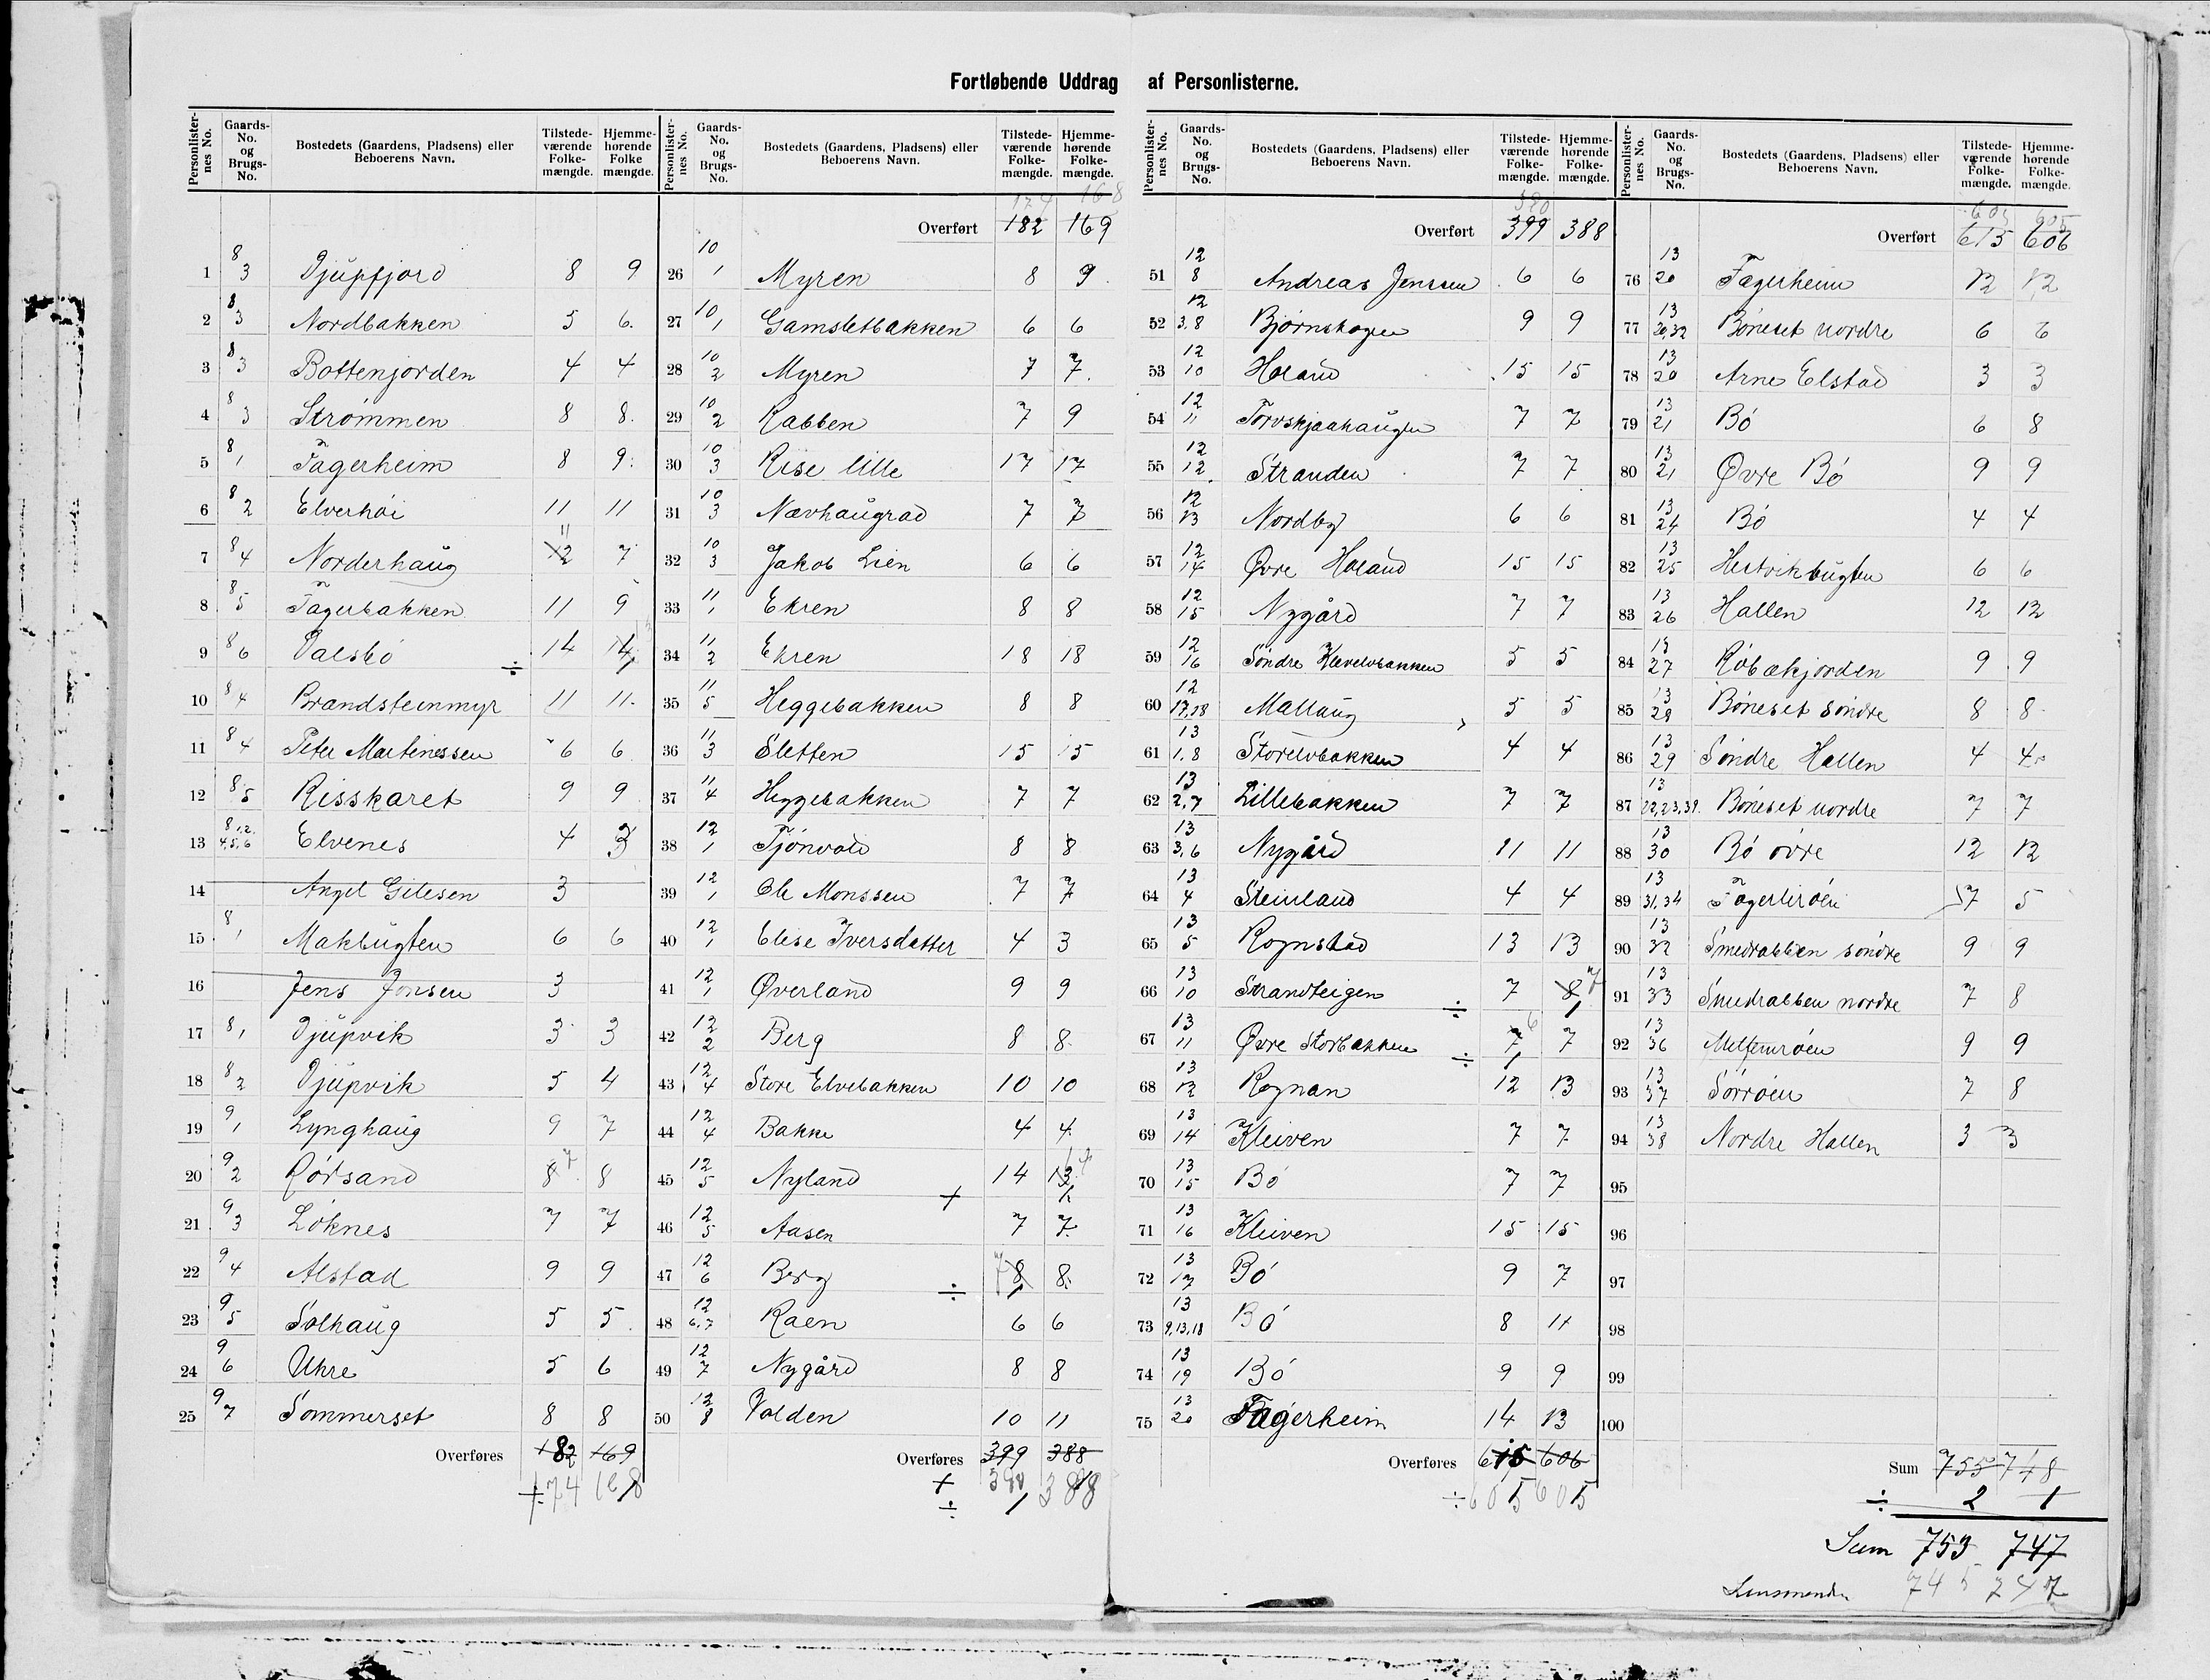 Fortløbende Uddrag af Personlisterne.
Personlister-nes No. | Gaards-No. og Brugs-No. | Bostedets (Gaardens, Pladsens) eller Beboerens Navn. | Tilstede-værende Folke-mængde. | Hjemme-hørende Folke mængde.
1 8 3 Djupfjord 8 9
2 8 3 Nordbakken 5 6.
3 8 3 Bottenjorden 4 4
4 8 3 Strømmen 8 8.
5 8 1 Fagerheim 8 9.
6 8 2 Elverhöi 11 11
7 8 4 Norderhaug 12 11 7
8 8 5 Fagerbakken 11 9
9 8 6 Valsbö ÷ 14 14
10 8 4 Brandsteinmyr 11 11.
11 8 4 Peter Martinessen 6 6
12 8 5 Risskaret 9 9
13 8 1,2, 4,5,6 Elvenes 4 3
14 Angel Gilesen 3
15 8 1 Makbugten 6 6
16 Jens Jonsen 3
17 8 1 Djupvik 3 3
18 8 2 Djupvik 5 4
19 9 1 Lynghaug 9 7
20 9 2 Rørsand 8 7 8
21 9 3 Löknes 7 7
22 9 4 Alstad 9 9
23 9 5 Solhaug 5 5.
24 9 6 Uhre 5 6
25 9 7 Sommerset 8 8
Overføres 182 169
÷ 174 168
Personlister-nes No. | Gaards-No. og Brugs-No. | Bostedets (Gaardens, Pladsens) eller Beboerens Navn. | Tilstede-værende Folke-mængde. | Hjemme-hørende Folke-mængde.
174 168
Overført 182 169
26 10 1 Myren 8 9.
27 10 1 Gamsletbakken 6 6
28 10 2 Myren 7 7.
29 10 2 Rabben 7 9
30 10 3 Rise lille 17 17
31 10 3 Nævhaugrad 7 7
32 10 3 Jakob Lien 6 6
33 11 1 Ekren 8 8
34 11 2 Ekren 18 18
35 11 5 Heggebakken 8 8
36 11 3 Sletten 15 15
37 11 4 Heggebakken 7 7
38 12 1 Tjönvold 8 8
39 12 1 Ole Monssen 7 7
40 12 1 Elise Iversdatter 4 3
41 12 1 Øverland 9 9
42 12 2 Berg 8 8.
43 12 4 Store Elvebakken 10 10
44 12 4 Bakke 4 4
45 12 5 Nyland + 14 13 14
46 12 5 Aasen 7 7.
47 12 6 Berg ÷ 7 8 8.
48 12 6,7 Raen 6 6
49 12 7 Nygård 8 8
50 12 8 Volden 10 11
Overføres 399 388
+ 390 388
÷ 1
Personlister-nes No. | Gaards-No. og Brugs-No. | Bostedets (Gaardens, Pladsens) eller Beboerens Navn. | Tilstede-værende Folke-mængde. | Hjemme-hørende Folke-mængde.
390
Overført 399 388
51 12 8 Andreas Jenssen 6 6
52 12 3,8 Bjørnskogen 9 9
53 12 10 Holand 15 15
54 12 11 Torvskjaahaugen 7 7
55 12 12 Stranden 7 7
56 12 13 Nordby 6 6
57 12 14 Øvre Holand 15 15
58 12 15 Nygård 7 7
59 12 16 Söndre Klevelvbakken 5 5
60 12 17,18 Mallaug 5 5
61 13 1.8 Storelvbakken 4 4
62 13 2,7 Lillebakken 7 7
63 13 3,6 Nygård 11 11
64 13 4 Steinland 4 4
65 13 5 Rognstad 13 13
66 13 10 Strandteigen ÷ 7 8 7
67 13 11 Øvre Storbakken ÷ 7 6 7
68 13 12 Rognan 12 13
69 13 14 Kleiven 7 7
70 13 15 Bö 7 7
71 13 16 Kleiven 15 15
72 13 17 Bö 9 7
73 13 9,13,18 Bö 8 11
74 13 19 Bö 9 9
75 13 20 Fagerheim 14 13
Overføres 615 606
÷ 605 605
Personlister-nes No. | Gaards-No. og Brugs-No. | Bostedets (Gaardens, Pladsens) eller Beboerens Navn. | Tilstede-værende Folke-mængde. | Hjemme-hørende Folke-mængde.
605 605
Overført 615 606
76 13 20 Fagerheim 12 12
77 13 20,32 Böneset nordre 6 6
78 13 20 Arne Elstad 3 3
79 13 21 Bö 6 8
80 13 21 Øvre Bö 9 9
81 13 24 Bö 4 4
82 13 25 Hestvikbugten 6 6
83 13 26 Hallen 12 12
84 13 27 Röbækjorden 9 9
85 13 28 Böneset söndre 8 8
86 13 29 Söndre Hallen 4 4
87 13 22,23,39. Böneset nordre 7 7
88 13 30 Bö övre 12 12
89 13 31,34 Fagerliröen 57 5
90 13 32 Smedrabben söndre 9 9
91 13 33 Smedrabben nordre 7 8
92 13 36 Mellemröen 9 9
93 13 37 Sörröen 7 8
94 13 38 Nordre Hallen 3 3
95
96
97
98
99
100
Sum 755 748
÷ 2 1
Sum 753 747
745 747